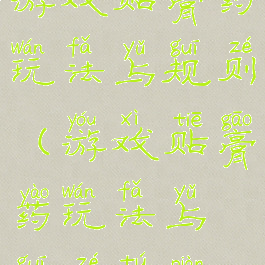 游戏贴膏药
wán fǎ yǔ guī zé
玩法与规则
yóu xì tiē gāo
（游戏贴膏
yào wán fǎ yǔ
药玩法与
guī zé tú piàn